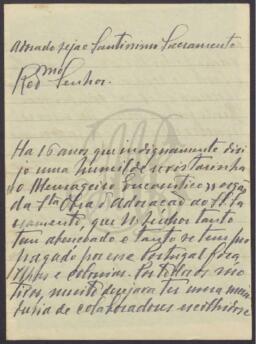 Adorado seja o Santissimo Sacramento
Red.mo Senhor.
Ha 16 anos que indignamente dirijo
uma humilde revistazinha
O Mensageiro Eucaristico, orgão
da
Adoração ao SS. Sa-
cramento, que N. Senhor tanto
tem abençoado e tanto se tem pro
pagado por esse Portugal fora
Ilhas e colonias. Por todos os mo
tivos, muito desejava ter uma
de colaboradores escolhidos e